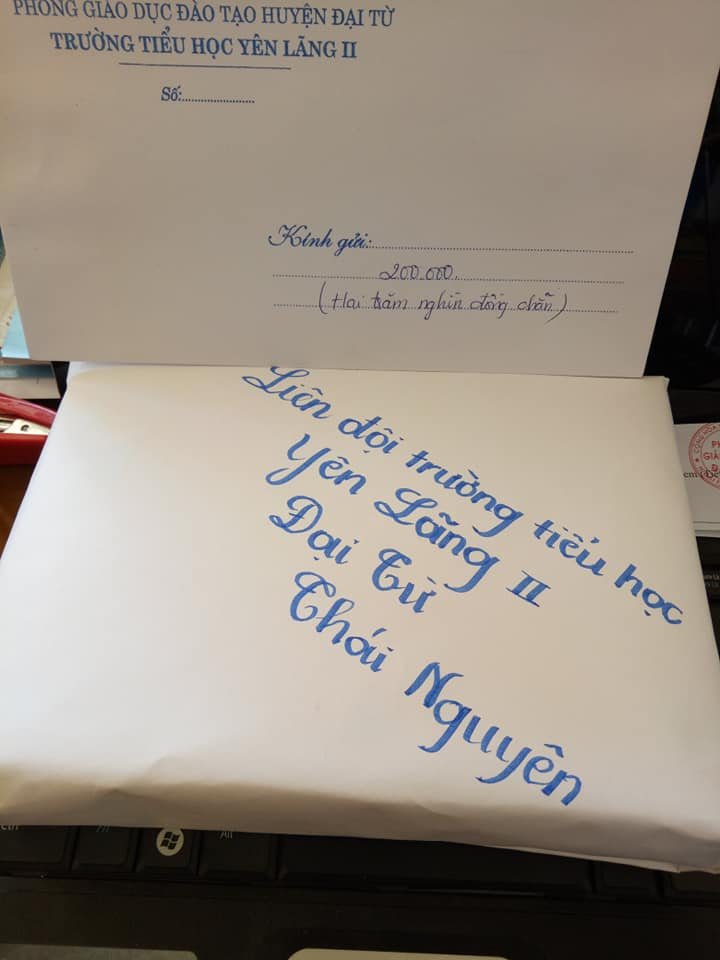 PHÒNG GIÁO DỤC ĐÀO TẠO HUYỆN ĐẠI TỪ
TRƯỜNG TIỂU HỌC YÊN LÃNG II
Số:........................
Kính gửi:........................
200.000
(Hai trăm nghìn đồng chẵn)
Liên đội trường tiểu học
Yên Lãng II
Đại Từ
Thái Nguyên
CỘNG HÒA
PH
GIÁ
Alt